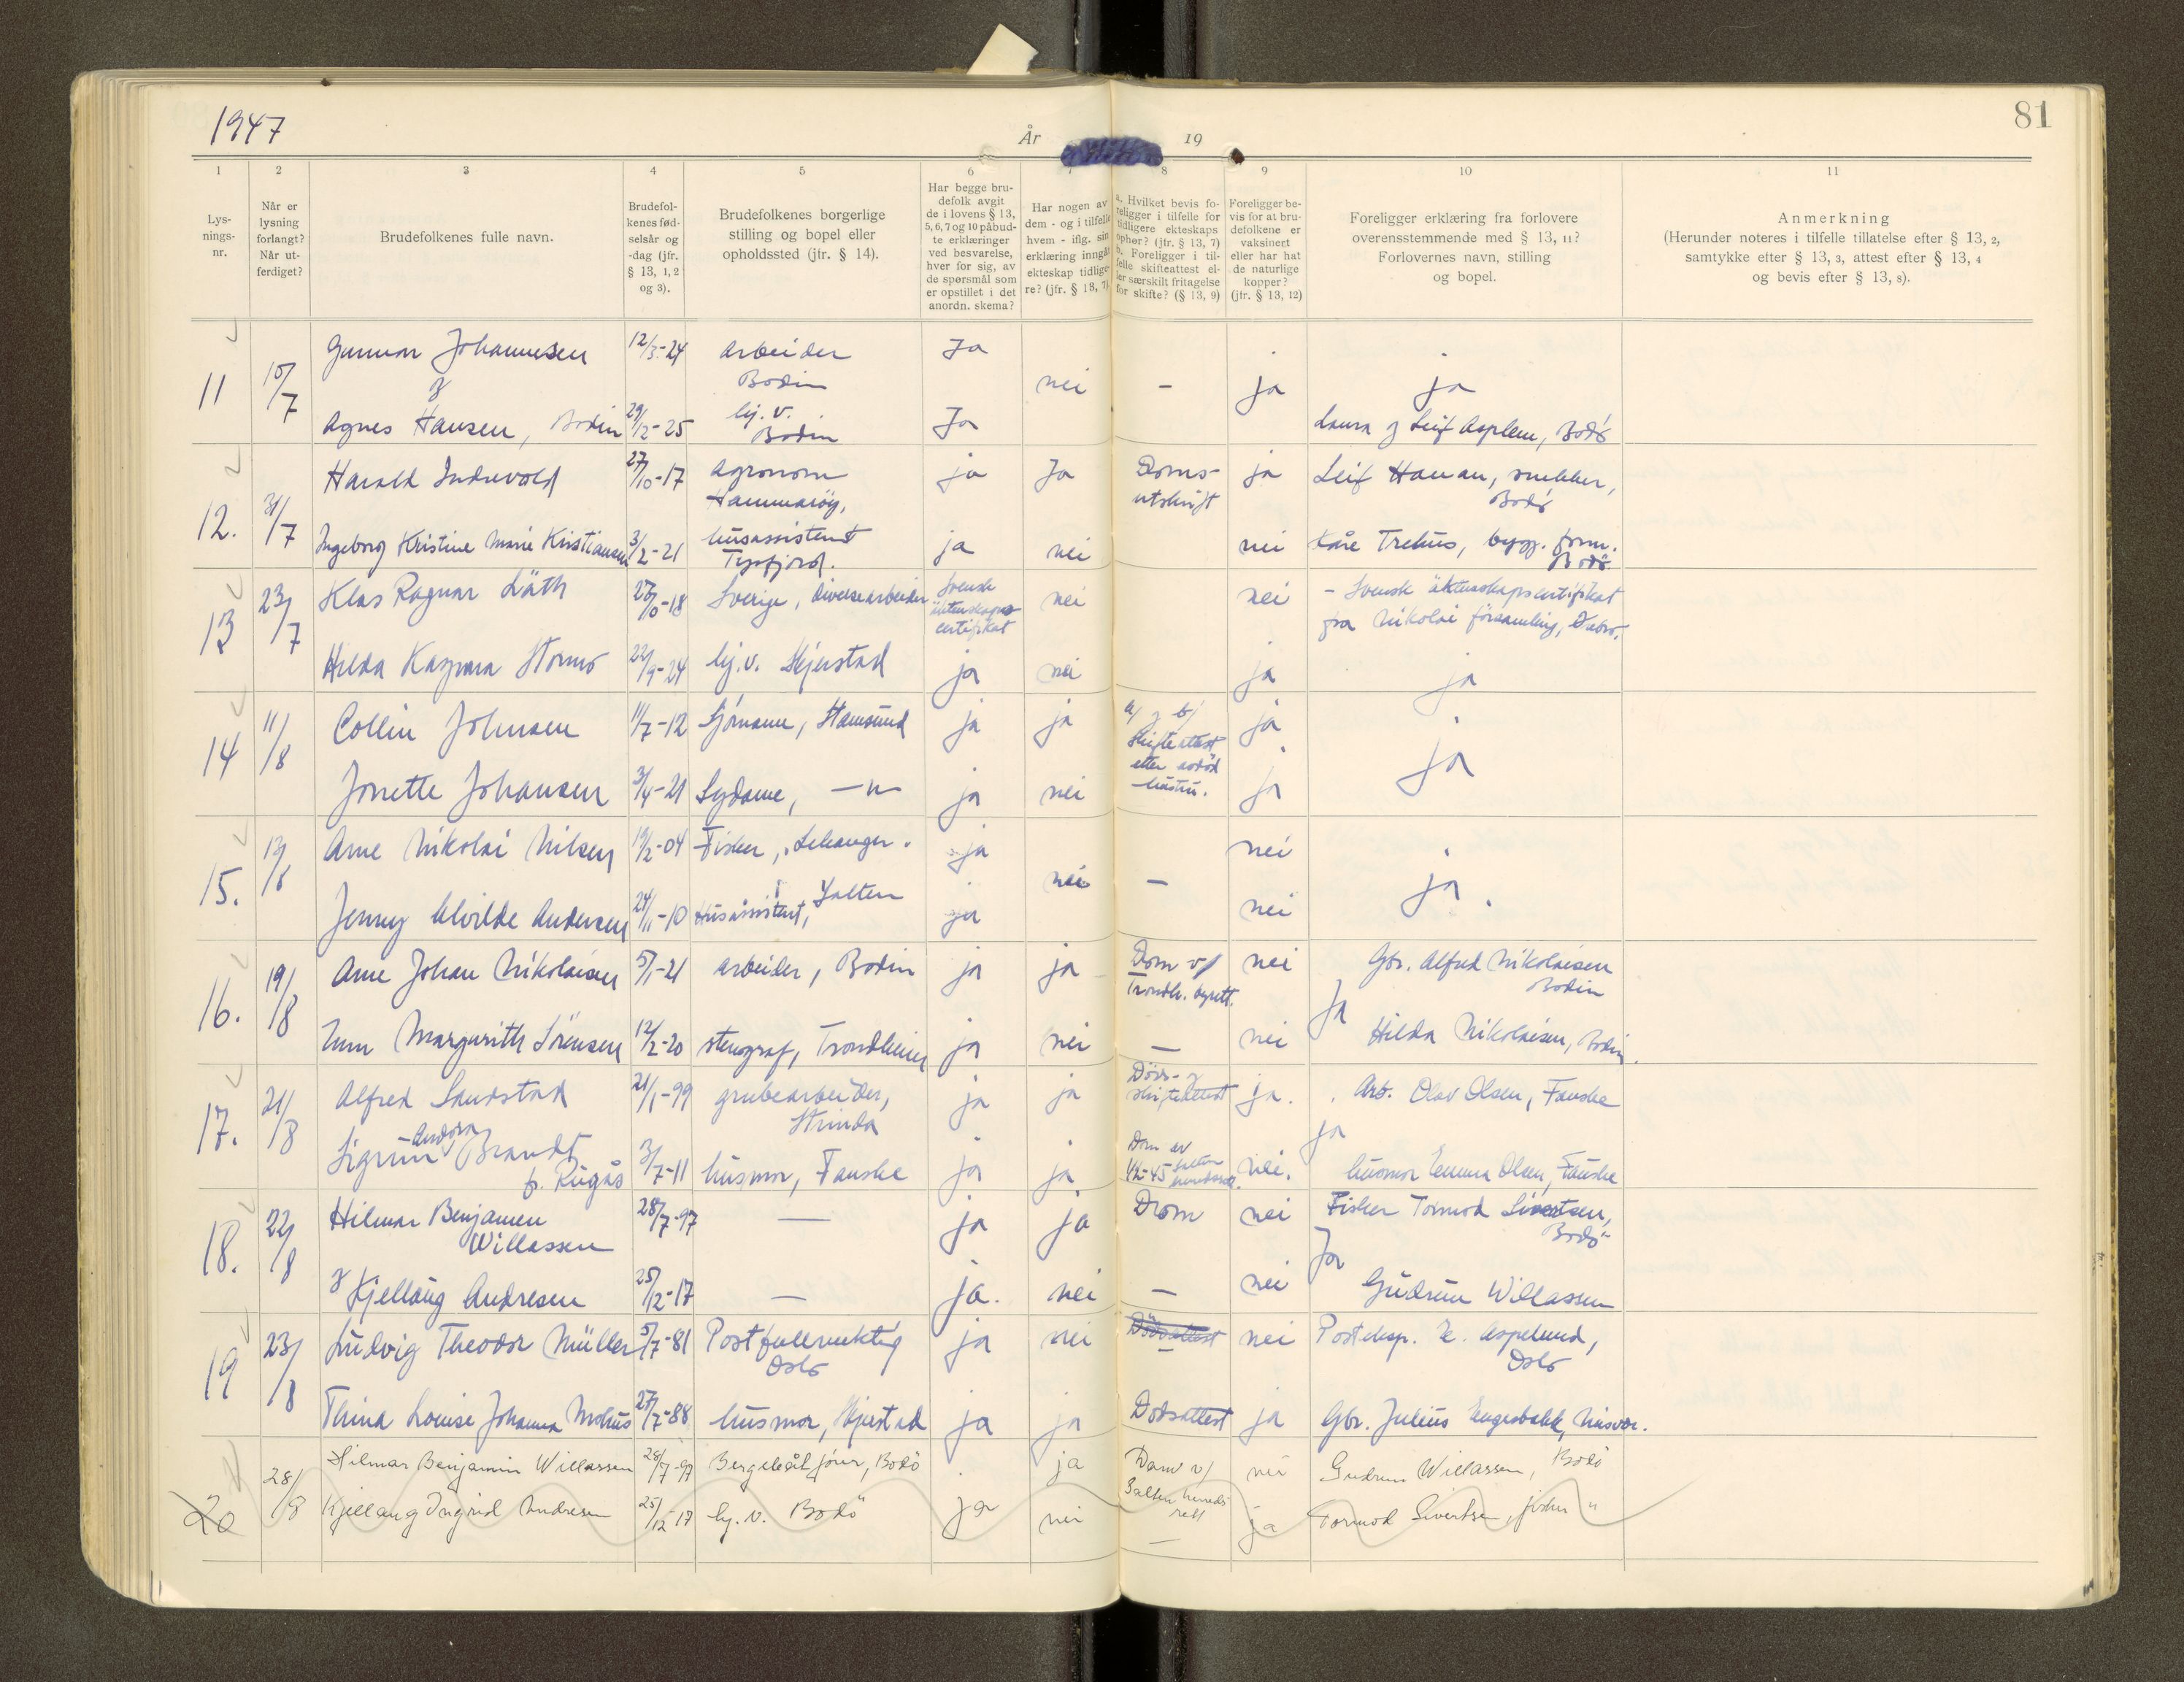 1947
År
19
81
1
2
3
4
5
6
7
8
9
10
11
Lys-
nings-
nr.
Når er
lysning
forlangt?
Når ut-
ferdiget?
Brudefolkenes fulle navn.
Brudefol-
kenes fød-
selsår og
-dag (jfr.
§ 13, 1, 2
og 3).
Brudefolkenes borgerlige
stilling og bopel eller
opholdssted (jfr. § 14).
Har begge bru-
defolk avgit
de i lovens § 13,
5, 6, 7 og 10 påbud-
te erklæringer
ved besvarelse,
hver for sig, av
de spørsmål som
er opstillet i det
anordn. skema?
Har nogen av
dem - og i tilfelle
hvem - iflg. sin
erklæring inngått
ekteskap tidlige-
re? (jfr. § 13, 7)
a. Hvilket bevis fo-
religger i tilfelle for
tidligere ekteskaps
ophør? (jfr. § 13, 7)
b. Foreligger i til-
felle skifteattest el-
ler særskilt fritagelse
for skifte? (§ 13, 9)
Foreligger be-
vis for at bru-
defolkene er
vaksinert
eller har hat
de naturlige
kopper?
(jfr. § 13, 12)
Foreligger erklæring fra forlovere
overensstemmende med § 13, 11?
Forlovernes navn, stilling
og bopel.
Anmerkning
(Herunder noteres i tilfelle tillatelse efter § 13, 2,
samtykke efter § 13, 3, attest efter § 13, 4
og bevis efter § 13, 8).
11
10/7
Gunnar Johannesen
12/3-24
arbeider
Bodin
Ja
nei
-
ja
ja
&
Agnes Hansen, Bodin
29/12-25
hj. v.
Bodin
Ja
Laura & Leif Asplem, Bodø
12.
31/7
Harald Indrevold
27/10-17
Agronom
Hammarøy,
ja
Ja
Doms-
utskrift
ja
Leif Hanan, snekker,
Bodø
Ingeborg Kristine Marie Kristiansen
3/2-21
husassistent
Tysfjord.
ja
nei
nei
Kåre Trehus, bygg. form.
Bodø
13
23/7
Klas Ragnar Läth
Sverige, diversearbeider
Svensk
äktenskaps
certifikat
nei
nei
- Svensk äktenskapscertifikat
fra Nikolai församling, Örebro.
Hilda Kaspara Stormo
22/9-24
hj. v. Skjerstad
ja
nei
ja
ja
14
11/8
Collin Johnsen
11/7-12
Sjømann, Stamsund
ja
ja
a/ & b/
Skifteattest
etter avdød
hustru.
ja
Ja
Jonette Johansen
3/4-21
Sydame, -"-
ja
nei
ja
15.
13/8
Arne Nikolai Nilsen
19/2-04
Fisker, Lekanger.
ja
nei
-
nei
ja.
Jenny Alvilde Andersen
24/11-10
Husassistent, Salten
ja
nei
16.
19/8
Arne Johan Nikolaisen
5/1-21
arbeider, Bodin
ja
ja
Dom v/
Trondh. byrett.
nei
Gbr. Alfred Nikolaisen
Bodin
Ja
Unn Margarith Sörensen
12/2-20
stenograf, Trondheim
ja
nei
-
nei
Hilda Nikolaisen, Bodin.
17.
21/8
Alfred Sandstad
21/1-99
grubearbeider,
Strinda
ja
ja
Döds- &
skifteattest
ja.
Arb. Olav Olsen, Fauske
ja
Sigrun Andora Brandt
f. Rugås
3/7-11
husmor, Fauske
ja
ja
Dom av
1/2-45 Salten
herredsrett.
nei.
husmor Emma Olsen, Fauske
18.
22/8
Hilmar Benjamin
Willassen
28/7-97
-
ja
ja
Dom
nei
Fisker Tormod Sivertsen,
Bodø
Ja
& Kjellaug Andresen
25/12-17
-
ja.
nei
-
nei
Gudrun Willassen
19
23/8
Ludvig Theodor Müller
5/7-81
Postfullmektig
Oslo
ja
nei
Dödsattest
-
nei
Posteksp. E. Aspelund,
Oslo
Thina Louise Johanna Mohus
27/7-88
husmor, Skjerstad
ja
ja
Dodsattest
ja
Gbr. Julius Engesbakk, Misvær.
20
28/8
Hilmar Benjamin Willassen
28/7-97
Bergslåtjour, Bodö
ja
Dom v/
Salten herreds
rett
nei
Gudrun Willassen, Bodö
Kjellaug Ingrid Andresen
25/12-17
hj. v. Bodö
ja
nei
-
ja
Tormod Sivertsen, fisker "